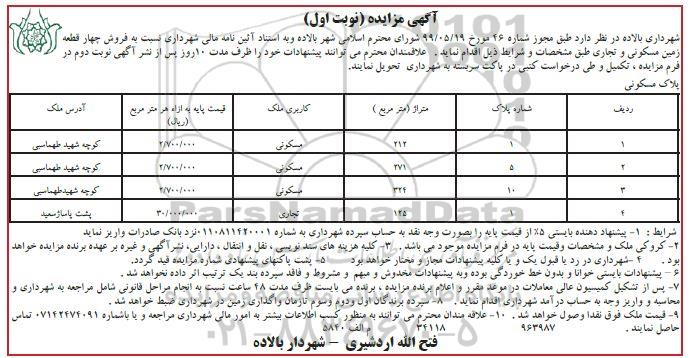 آگهی مزایده (نوبت اول)
شهرداری بالاده در نظر دارد طبق مجوز شماره ۲۶ مورخ ۹۹/۰۵/۱۹ شورای محترم اسلامی شهر بالاده وبه استناد آئین نامه مالی شهرداری نسبت به فروش چهار قطعه
زمین مسکونی و تجاری طبق مشخصات و شرایط ذیل اقدام نماید . علاقمندان محترم می توانند پیشنهادات خود را ظرف مدت ۱۰روز پس از نشر آگهی نوبت دوم در
فرم مزایده ، تکمیل و طی درخواست کتبی در پاکت سربسته به شهرداری تحویل نمایند.
پلاک مسکونی
ردیف شماره پلاک متراژ (متر مربع ) کاربری ملک قیمت پایه به ازاء هر متر مربع (ریال) آدرس ملک
۱ ۱ ۲۱۲ مسکونی ۲/۷۰۰/۰۰۰ کوچه شهید طهماسبی
۲ ۵ ۲۷۱ مسکونی ۲/۷۰۰/۰۰۰ کوچه شهید طهماسبی
۳ ۱۰ ۳۲۴ مسکونی ۲/۷۰۰/۰۰۰ کوچه شهیدطهماسبی
۴ ۱ ۱۲۵ تجاری ۳۰/۰۰۰/۰۰۰ پشت پاساژسعید
شرایط : ۱- پیشنهاد دهنده بایستی ۵٪ از قیمت پایه را بصورت وجه نقد به حساب سپرده شهرداری به شماره ۰۱۱۰۸۱۱۴۲۰۰۰۱نزد بانک صادرات واریز نماید
۲- کروکی ملک و مشخصات وقیمت پایه در فرم مزایده موجود می باشد . ۳- کلیه هزینه های سند نویسی ، نقل و انتقال ، دارایی، نشر آگهی و غیره بر عهده برنده مزایده خواهد
بود. ۴ -شهرداری در رد یا قبول یک و یا کلیه پیشنهادات مجاز و مختار خواهد بود ۵- پشت پاکتهای پیشنهادی شماره مزایده قید گردد.
۶ – پیشنهادات بایستی خوانا و بدون خط خوردگی بوده وبه پیشنهادات مخدوش و مبهم و مشروط و فاقد سپرده بند یک ترتیب اثر داده نخواهد شد .
۷- پس از تشکیل کمیسیون عالی معاملات در موعد مقرر و اعلام برنده مزایده ، برنده می بایست ظرف مدت ۴۸ ساعت نسبت به انجام مراحل قانونی شامل مراجعه به شهرداری و
محاسبه و واریز وجه به حساب درآمد شهرداری اقدام نماید . ۸- سپرده برندگان اول ودوم وسوم تازمان واگذاری زمین در شهرداری ضبط خواهد شد.
۹- قیمت ملک فوق نقدا وصول خواهد شد. ۱۰- علاقه مندان محترم می توانند به منظور کسب اطلاعات بیشتر به امور مالی شهرداری مراجعه و یا باشماره ۰۷۱۴۲۴۷۴۰۹۱ تماس
حاصل نمایند . ۹۶۳۹۸۷ ۳۴۱۱۸ م الف ۵۸۴۰
فتح الله اردشیری – شهردار بالاده
ParsNamadData
۰۲۱-۸۸۳۴۹۶۷۰-۵